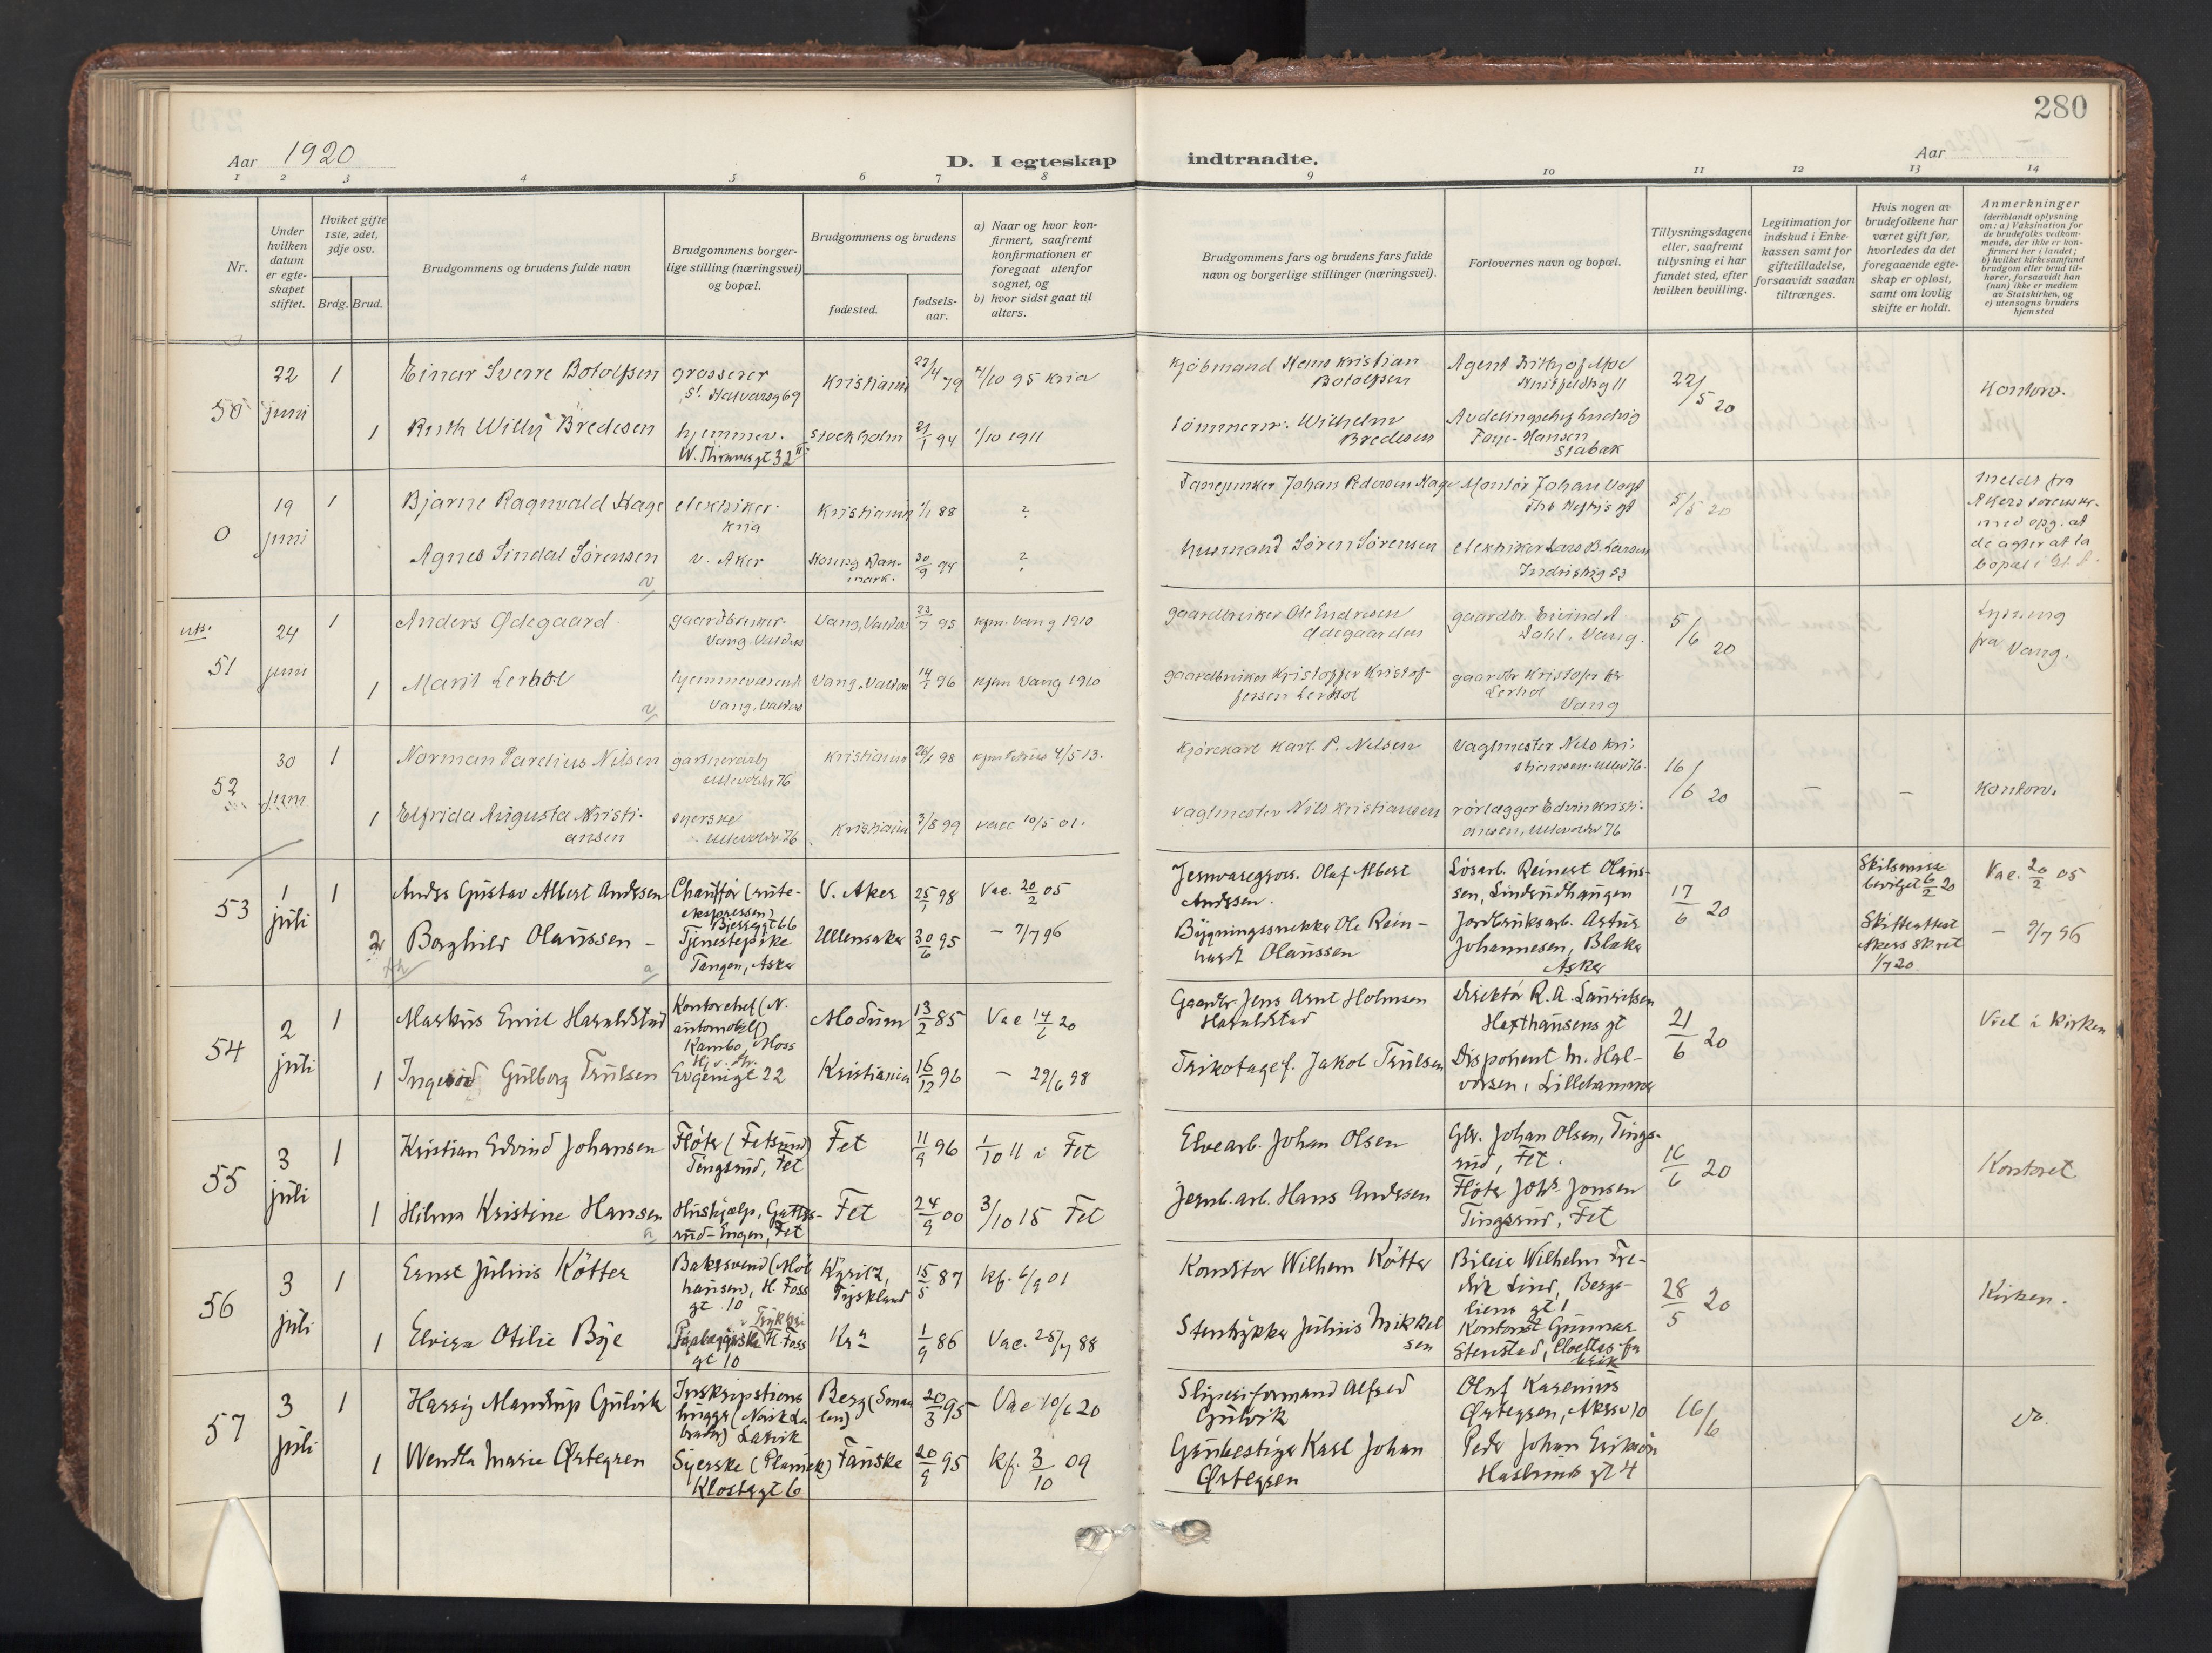 280
Aar 1920
D. I egteskap indtraadte.
Aar
1 2 3 4 5 6 7 8 9 10 11 12 13 14
Nr.
Under hvilken datum er egteskapet stiftet.
Hvilket gifte 1ste, 2det, 3dje osv.
Brdg. Brud.
Brudgommens og brudens fulde navn
Brudgommens borgerlige stilling (næringsvei) og bopæl.
Brudgommens og brudens
fødested.
fødselsaar.
a) Naar og hvor konfirmert, saafremt konfirmationen er foregaat utenfor sognet, og
b) hvor sidst gaat til alters.
Brudgommens fars og brudens fars fulde navn og borgerlige stillinger (næringsvei).
Forlovernes navn og bopæl.
Tillysningsdagene eller, saafremt tillysning ei har fundet sted, efter hvilken bevilling.
Legitimation for indskud i Enkekassen samt for giftetilladelse, forsaavidt saadan tiltrænges.
Hvis nogen av brudefolkene har været gift før, hvorledes da det foregaaende egteskap er opløst, samt om lovlig skifte er holdt.
Anmerkninger
(deriblandt oplysning om: a) Vaksination for de brudefolks vedkommende, der ikke er konfirmert her i landet; b) hvilket kirkesamfund brudgom eller brud tilhører, forsaavidt han (hun) ikke er medlem av Statskirken, og c) utensogns bruders hjemsted
50
22 juni
1
Einar Sverre Botolfsen
grosserer
St. Halvardsg 69
Kristiania
79
/10 95 Kria
Kjøbmand Hans Kristian
Botolfsen
Agent
22/5 20
Kontoro.
1
Ruth Willy Bredesen
hjemmev.
W. Thranesgt 32 II
Stockholm
21/1 94
1/10 1911
Tømmerm. Wilhelm
Bredesen
Avdelingschef Ludvig
Faye-Hansen
Stabæk
0
19 juni
1
Bjarne Ragnvald Hage
elektriker
Kria
Kristiania
/1 88
?
Fanejunker Johan Pedersen Hage
Montør Johan Vogt
5/5 20
Meldt fra
Akers sorenskr.
med opg. at
de agter at ta
bopæl i
Agnes Sindal Sørensen
v. Aker
mark.
30/9 94
?
Husmand Søren Sørensen
elektriker Lars B. Larsen
53
51
24 juni
1
Anders Ødegaard
gaardbruker
Vang, Valdres
Vang, Valdres
23/7 95
kfm. Vang 1910
gaardbruker Ole Endresen
Ødegaarden
gaardbr. Eivind A.
Dahl, Vang.
5/6 20
Lysning
fra Vang.
1
Marit Lerhol
hjemmeværende
Vang, Valdres
Vang, Valdres
14/1 96
kfm Vang 1910
gaardbruker Kristoffer Kristoffersen Lerhol
gaardbr Kristofer
Lerhol
Vang
52
30 juni
1
Norman Parelius Nilsen
gartnerarb.
Ullevoldsv 76
Kristiania
98
4/5 13.
Kjørekarl Karl P. Nilsen
Vagtmester Nils Kristiansen. Ullev 76.
16/6 20
–
–
Kontoro.
1
Elfrida Augusta Kristiansen
syerske
Ullevoldsv 76
Kristiania
3/8 99
vacc 10/5 01.
Vagtmester Nils Kristiansen
rørlægger Edvin Kristiansen, Ullevoldsv 76
53
1 juli
1
Anders Gustav Albert Andersen
Chauffør (rute-
ekspressen)
Bjerregt 66
V. Aker
25/1 98
Vac. 20/2 05
Jernvaregross. Olaf Albert
Andersen.
Løsarb. Reinert Olaus-
sen, Lindrudhaugen
17/6 20
Skilsmisse
bevilget 6/2 20
Vac. 20/2 05
2
Borghild Olaussen –
Tjenestepike
Tangen, Asker
Ullensaker
30/6 95
– 9/7 96
Bygningssnekker Ole Rein-
hardt Olaussen
Jordbruksarb. Artur
Johannesen, Blaker
Asker
Skifteattest
Akers skret
1/7 20
– 9/7 96
54
2 juli
1
Markus Emil Haraldstad
Kontorchef (N.
automobil)
Kambo, Moss
Modum
13/2 85
Vac 14/6 20
Gaardbr. Jens Arnt Holmsen
Haraldstad
Direktør R. A. Lauritsen
Hafthausens gt
21/6 20
Viel i Kirken
1
Ingerid Gulborg Trulsen
Eugenigt 22
Kristiania
16/12 96
– 29/6 98
Trikotagef. Jakob Trulsen
Disponent M. Hal-
vorsen, Lillehammer
55
3 juli
1
Kristian Edvind Johansen
Fløter (Fetsund)
Tingsrud, Fet
Fet
11/9 96
1/10 11 i Fet
Elvearb. Johan Olsen
Gbr. Johan Olsen, Tings-
rud, Fet.
16/6 20
Kontoret
1
Hilma Kristine Hansen
Huskjælp,
rud-Engen, Fet
Fet
24/9 00
3/10 15 Fet
Jernb.arb. Hans Andersen
Fløter Johs. Jonsen
Tingsrud, Fet
56
3 juli
1
Ernst Julius Kötter
Bakersvend (Møl
hausen), H. Foss
gt. 10
Kyritz,
Tyskland
15/5 87
kf. 6/9 01
Konditor Wilhem Kötter
Bileier Wilhelm Fre-
drik Lind, Bergs-
liens gt 1
28/5 20
Kirken.
1
Elvira Otilie Bye
H. Foss
gt 10
Kra
1/9 86
Vac. 25/7 88
Stentrykker Julius Mikkel
sen
Kontorist Gunnar
Stenstad,
57
3 juli
1
Harry Mandrup Gulvik
Larvik
Berg (Smaa
len)
20/3 95
Vac 10/6 20
Sliperiformand Alfred
Gulvik
Olaf Karenius
Ørtegren, Akersv 10
16/6
do.
1
Wendla Marie Ørtegren
Syerske
Klostergt 6
Fauske
20/9 95
kf. 3/10 09
Grubestiger Karl Johan
Ørtegren
Peder Johan Erikson
gt 4